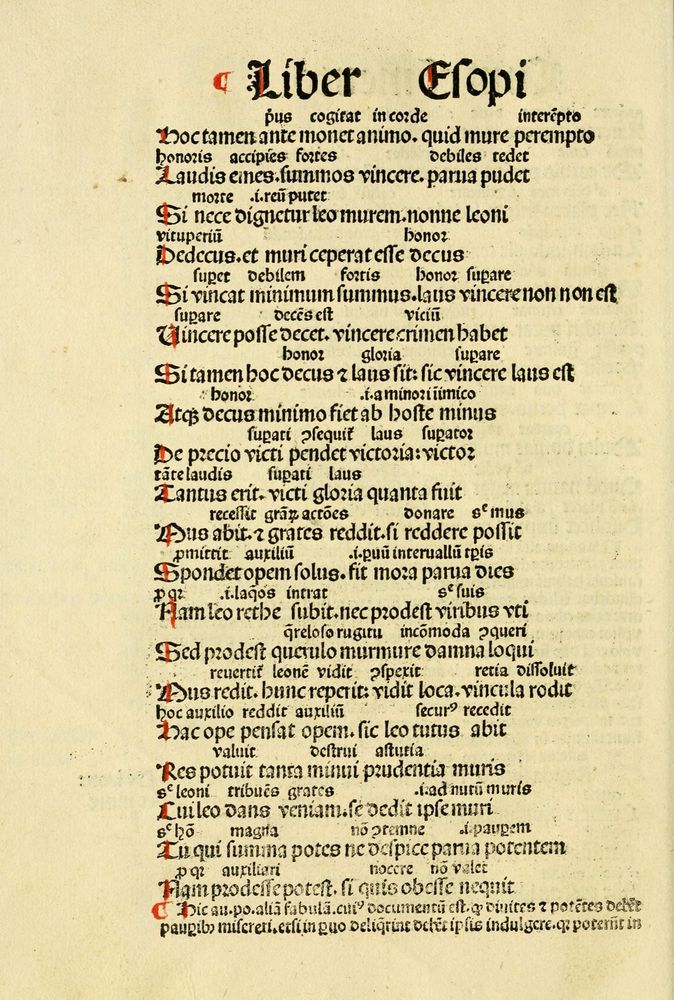 ¶ Liber Esopi
p̄us cogitat in corde interēpto
Hoc tamen ante monet animo. quid mure perempto
honoris accipiēs fortes debiles redet
Laudis emes. summos vincere. parua pudet
morte .i. reū putet
Si nece dignetur leo murem. nonne leoni
vituperiū honor
Dedecus. et muri ceperat esse decus
suꝑet debilem fortis honor suꝑare
Si vincat minimum summus. laus vincere non non est
suꝑare decēs est viciū
Uincere posse decet. vincere crimen habet
honor gloria suꝑare
Si tamen hoc decus ⁊ laus sit: sic vincere laus est
honor .i. a minori iimico
Atqꝫ decus minimo fiet ab hoste minus
suꝑati ꝯsequit̄ laus suꝑator
De precio victi pendet victoria: victor
tāte laudis suꝑati laus
Tantus erit. victi gloria quanta fuit
recessit grāꝝ actōes donare sᶜ mus
Mus abit. ⁊ grates reddit. si reddere possit
ꝓmittit auxiliū .i. ꝑuū interuallū tꝑis
Spondet opem solus. fit mora parua dies
ꝓ qꝛ .i. laq̄os intrat sᶜ suis
Nam leo rethe subit. nec prodest viribus vti
q̄reloso rugitu incōmoda ꝯqueri
Sed prodest querulo murmure damna loqui
reuertit̄ leonē vidit ꝯspexit retia dissoluit
Mus redit. hunc reperit: vidit loca. vincula rodit
hoc auxilio reddit auxiliū securꝰ recedit
Hac ope pensat opem. sic leo tutus abit
valuit destrui astutia
Res potuit tanta minui prudentia muris
sᶜ leoni tribuēs grates .i. ad nutū muris
Cui leo dans veniam. se dedit ipse muri
sᶜ hō magna nō ꝯtemne .i. pauꝑem
Tu qui summa potes ne despice parua potentem
ꝓ qꝛ auxiliari nocere nō valet
Nam prodesse potest. si quis obesse nequit
¶ Hic au. po. aliā fabulā. cuiꝰ documentū est. ꝙ diuites ⁊ potētes debēt
pauꝑibꝫ misereri. etsi in ꝑuo deliq̄rint debēt ipsis indulgere. qꝛ poterūt in